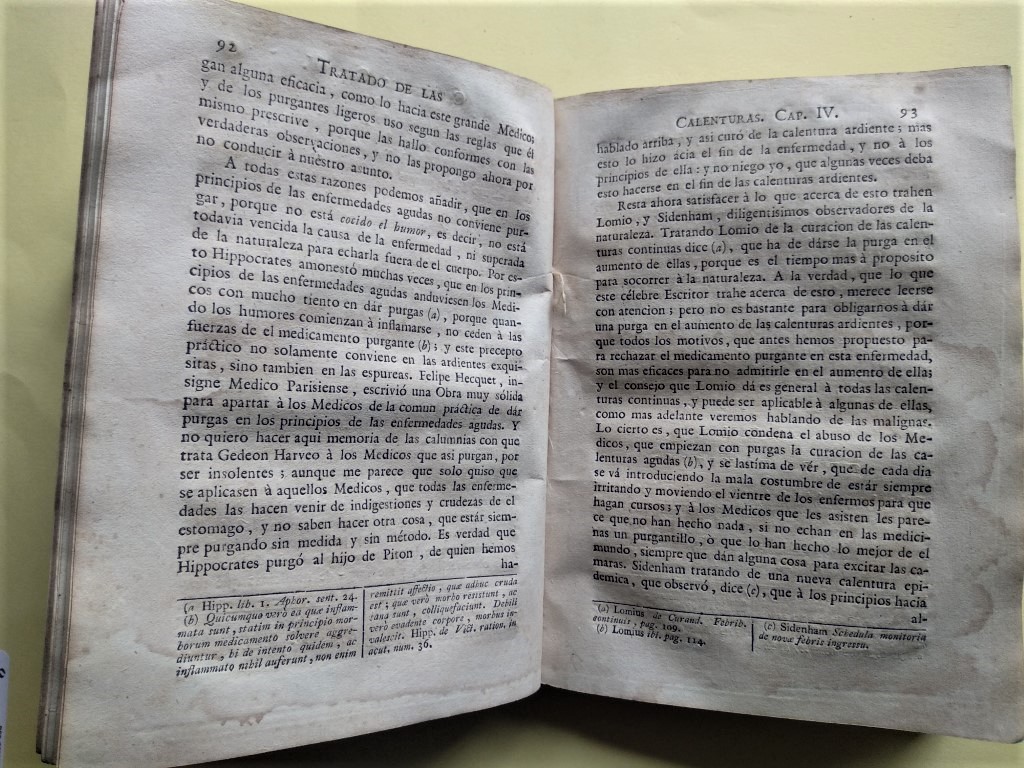 92
TRATADO DE LAS
gan alguna eficacia, como lo hacia este grande Medico;
y de los purgantes ligeros uso segun las reglas que él
mismo prescrive, porque las hallo conformes con las
verdaderas observaciones, y no las propongo ahora por
no conducir à nuestro asunto.
A todas estas razones podemos añadir, que en los
principios de las enfermedades agudas no conviene pur-
gar, porque no está cocido el humor, es decir, no está
todavia vencida la causa de la enfermedad, ni superada
de la naturaleza para echarla fuera de el cuerpo. Por es-
to Hippocrates amonestó muchas veces, que en los prin-
cipios de las enfermedades agudas anduviesen los Medi-
cos con mucho tiento en dár purgas (a), porque quan-
do los humores comienzan à inflamarse, no ceden à las
fuerzas de el medicamento purgante (b); y este precepto
práctico no solamente conviene en las ardientes exqui-
sitas, sino tambien en las espureas. Felipe Hecquet, in-
signe Medico Parisiense, escrivió una Obra muy sólida
para apartar à los Medicos de la comun práctica de dár
purgas en los principios de las enfermedades agudas. Y
no quiero hacer aqui memoria de las calumnias con que
trata Gedeon Harveo à los Medicos que asi purgan, por
ser insolentes; aunque me parece que solo quiso que
se aplicasen à aquellos Medicos, que todas las enferme-
dades las hacen venir de indigestiones y crudezas de el
estomago, y no saben hacer otra cosa, que estár siem-
pre purgando sin medida y sin método. Es verdad que
Hippocrates purgó al hijo de Piton, de quien hemos
ha-
(a Hipp. lib. 1. Aphor. sent. 24.
(b) Quicumque verò ea quæ inflam-
mata sunt, statim in principio mor-
borum medicamento solvere aggre-
diuntur, hi de intento quidem, ac
inflammato nihil auferunt, non enim
remittit affectio, quæ adhuc cruda
est; quæ verò morbo resistunt, ac
sana sunt, colliquefaciunt. Debili
verò evadente corpore, morbus in-
valescit. Hipp. de Vict. ration. in
acut. num. 36.
CALENTURAS. CAP. IV. 93
hablado arriba, y asi curó de la calentura ardiente; mas
esto lo hizo ácia el fin de la enfermedad, y no à los
principios de ella: y no niego yo, que algunas veces deba
esto hacerse en el fin de las calenturas ardientes.
Resta ahora satisfacer à lo que acerca de esto trahen
Lomio, y Sidenham, diligentisimos observadores de la
naturaleza. Tratando Lomio de la curacion de las calen-
turas continuas dice (a), que ha de dárse la purga en el
aumento de ellas, porque es el tiempo mas à proposito
para socorrer à la naturaleza. A la verdad, que lo que
este célebre Escritor trahe acerca de esto, merece leerse
con atencion; pero no es bastante para obligarnos à dár
una purga en el aumento de las calenturas ardientes, por-
que todos los motivos, que antes hemos propuesto pa-
ra rechazar el medicamento purgante en esta enfermedad,
son mas eficaces para no admitirle en el aumento de ella;
y el consejo que Lomio dá es general à todas las calen-
turas continuas, y puede ser aplicable à algunas de ellas,
como mas adelante veremos hablando de las malignas.
Lo cierto es, que Lomio condena el abuso de los Me-
dicos, que empiezan con purgas la curacion de las ca-
lenturas agudas (b), y se lastima de vér, que de cada dia
se vá introduciendo la mala costumbre de estár siempre
irritando y moviendo el vientre de los enfermos para que
hagan cursos; y à los Medicos que les asisten les pare-
ce que no han hecho nada, si no echan en las medici-
nas un purgantillo, ò que lo han hecho lo mejor de el
mundo, siempre que dán alguna cosa para excitar las ca-
maras. Sidenham tratando de una nueva calentura epi-
demica, que observó, dice (c), que à los principios hacia
al-
(a) Lomius de Curand. Febrib.
continuis, pag. 109.
(b) Lomius ibi, pag. 114.
(c) Sidenham Schedula monitoria
de novæ febris ingressu.